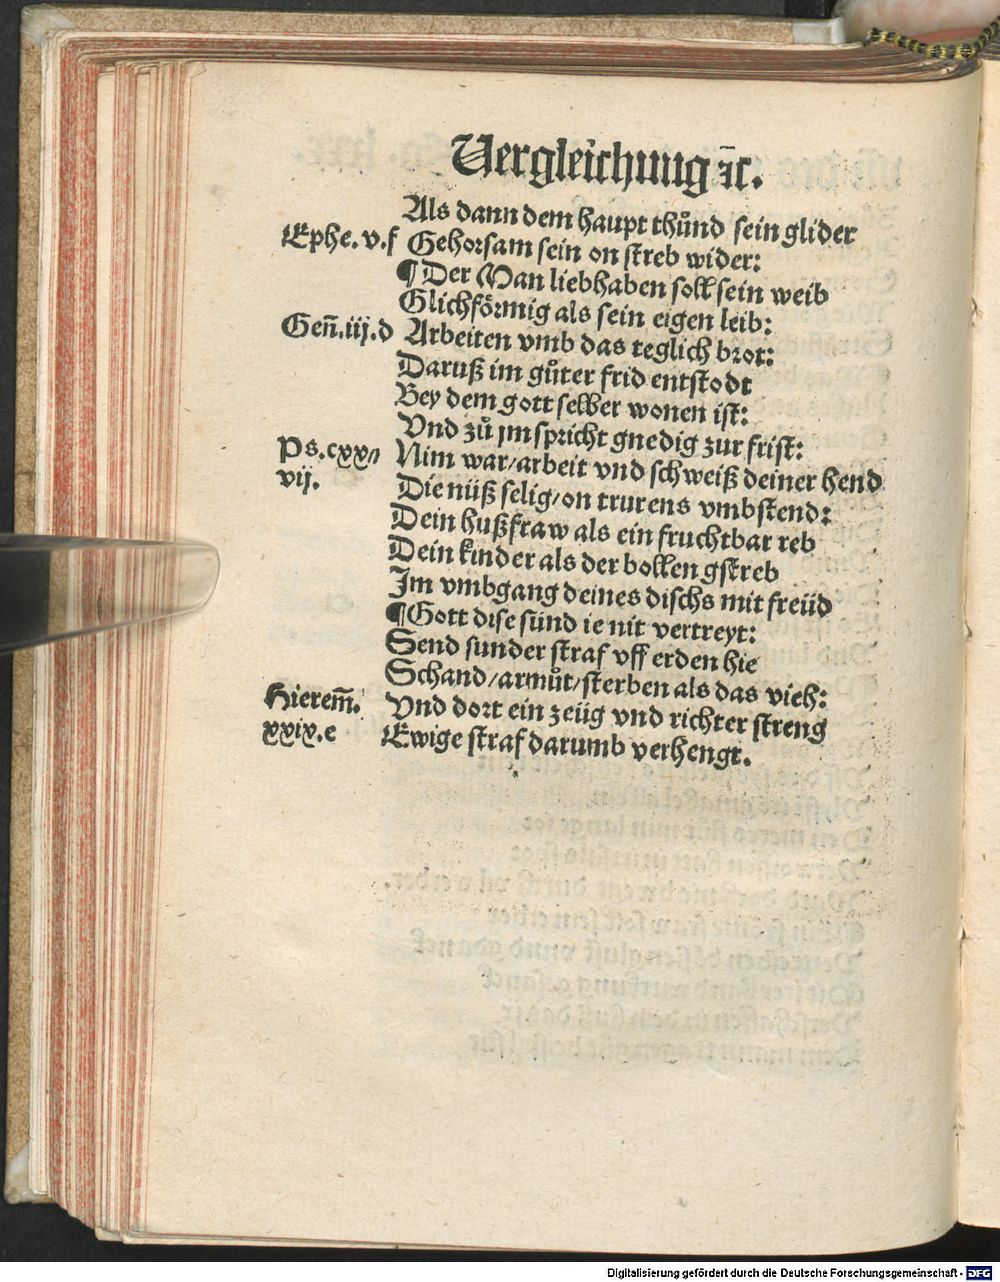 Vergleichung ꝛc̄.
Als dann dem haupt thůnd sein glider
Ephe. v. f Gehorsam sein on streb wider:
¶ Der Man liebhaben soll sein weib
Glichförmig als sein eigen leib:
Geñ. iij. d Arbeiten vmb das teglich brot:
Daruß im gůter frid entstodt
Bey dem gott selber wonen ist:
Vnd zů jm spricht gnedig zur frist:
Ps. cxx/ Nim war/arbeit vnd schweiß deiner hend
vij. Die nüß selig/on trurens vmbstend:
Dein hußfraw als ein fruchtbar reb
Dein kinder als der bollen gstreb
Im vmbgang deines dischs mit freüd
¶ Gott dise sünd ie nit vertreyt:
Send sunder straf vff erden hie
Schand/armůt/sterben als das vieh:
Hierem̄. Vnd dort ein zeüg vnd richter streng
xxix. e Ewige straf darumb verhengt.
Digitalisierung gefördert durch die Deutsche Forschungsgemeinschaft - DFG